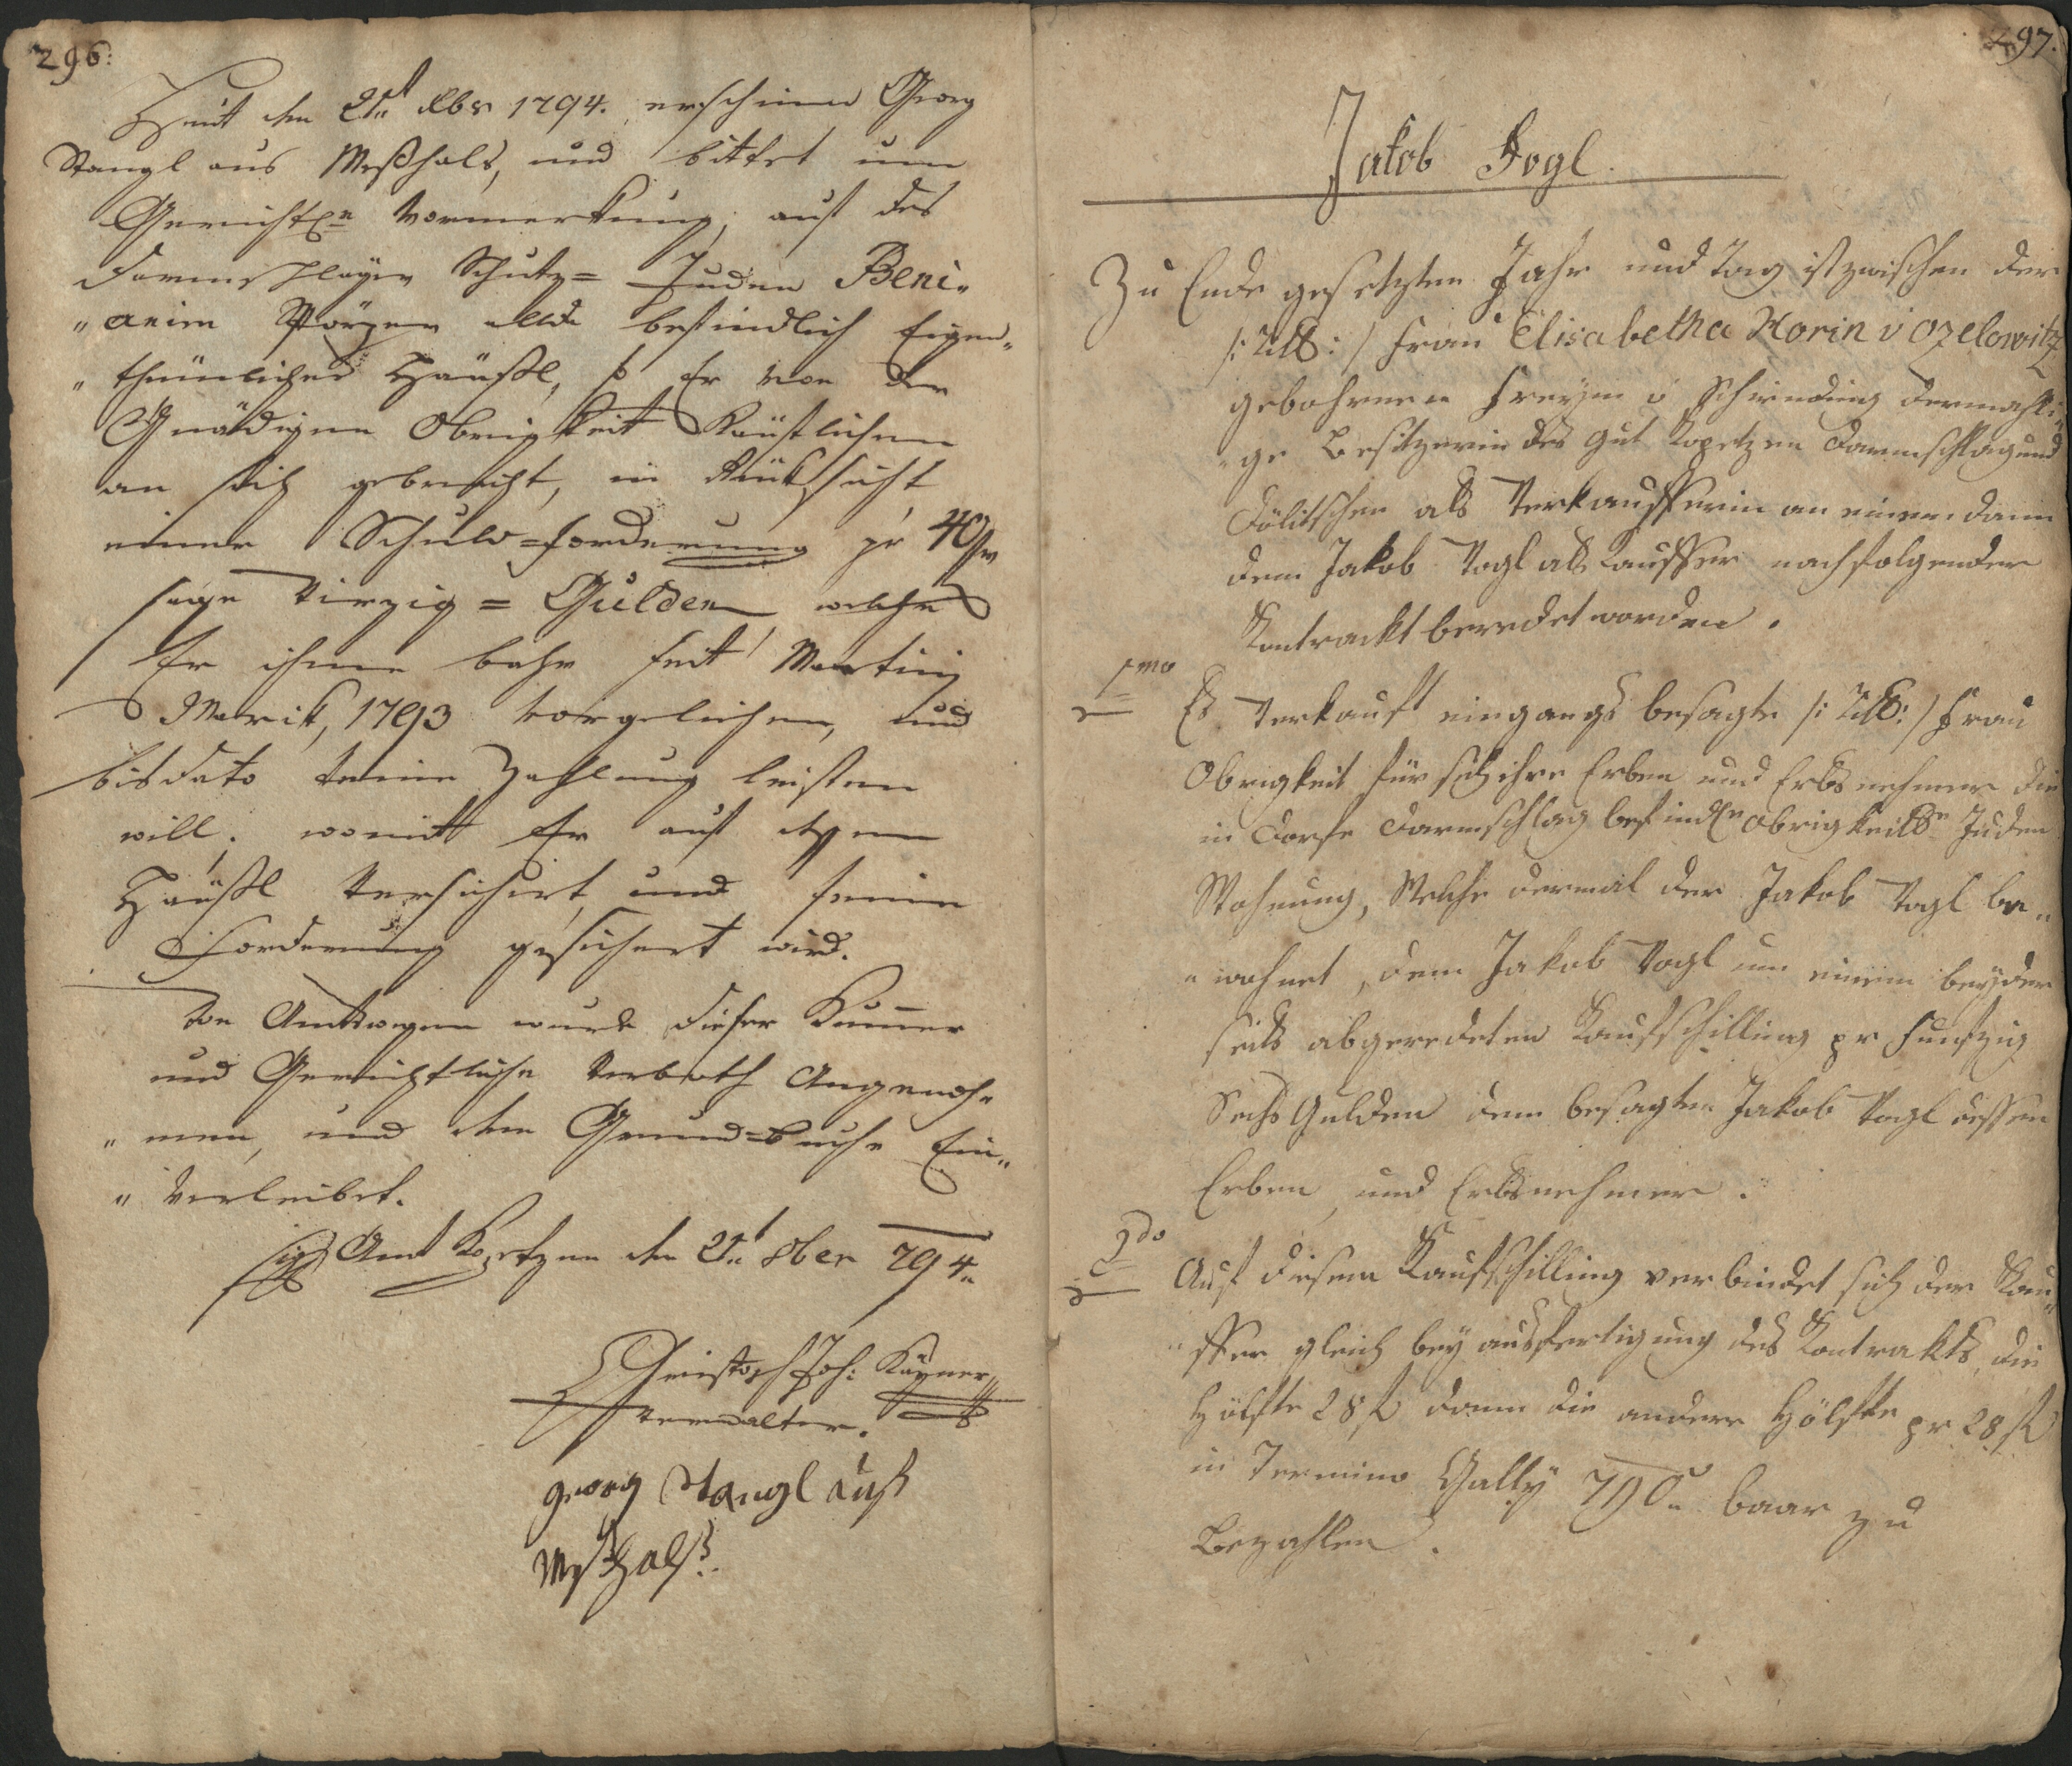 296:
Heut den 21t. 8br 1794. erscheinen Georg
Stangl aus Meßhals, und bittet um
Gericht. Vormerkung, auf des
Darmschlager Schutz= Juden Beni„
„amin allda befindlich Eigen„
„thümlichen Häußl, so Er von der
Gnädigen Obrigkeit Käuflichen
an sich gebracht, in Rücksicht
einer Schuld=forderung pr 40 f
sage Vierzig = Gulden welche
Er ihme bahr seit Martini
Markt, 1793 vorgeliehen, und
bisdato keine Zahlung leisten
will. womit Er auf dessen
Häußl Versichert, und seine
Forderung gesichert wird.
Von Amtswegen wurde dieser Kummer
und Gerichtliche Verboth Angenoh„
„men, und dem Grund=buche Ein„
„Verleibet.
Sig Amt Kopetzen den 21t 8ber 794„
Christoph Joh: Kayner
Verwalter.
georg Stangl auß
Meßhalß.
297.
Jakob Vogl.
Zu Ende gesetzten Jahr und Tag ist zwischen der
/: Titl: / Frau Elisabetha Horin v Ozelowitz
gebohrnen Freyin v Schirnding dermahli„
„ge Besitzerin des Gut Kopetzen Darmschlag und
Dölitschen als Verkaufferin an einem dann
dem Jakob Vogl als Kauffer nachfolgender
Kontrackt beredet worden.
1mo
Es Verkauft eingangs besagte /: Titl: / Frau
Obrigkeit für sich ihre Erben und Erbsnehmer die
in Dorfe Darmschlag befindln Obrigkeitln Juden
Wohnung, Welche dermal der Jakob Vogl be„
„wohnet, dem Jakob Vogl um einem beyder
seits abgeredeten Kaufschilling pr Funfzig
Sechs Gulden dem besagten Jakob Vogl dessen
Erben, und Erbsnehmer.
2do
Auf diesem Kaufschilling verbindet sich der Kau„
„ffer gleich bey ausfertigung des Kontrakts, die
Hölfte 28 f dann die andere Hölfte pr 28 f
in Termino Gally 790„ baar zu
Bezahlen.